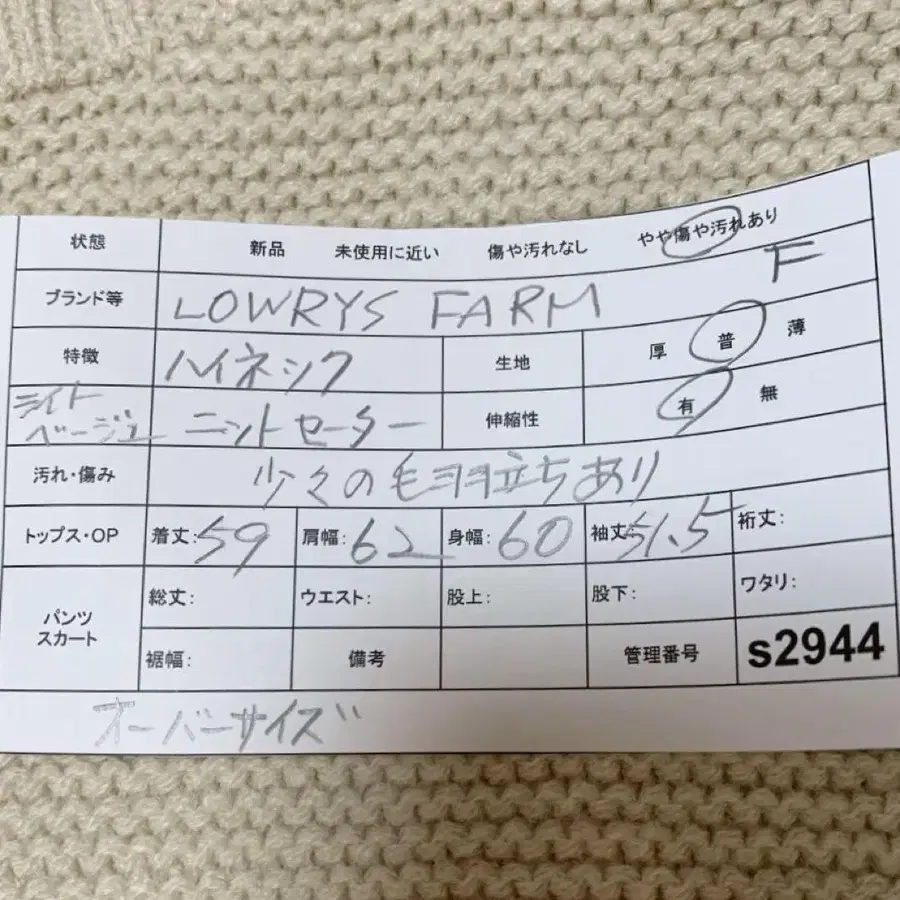 状態 新品 未使用に近い 傷や汚れなし やや傷や汚れあり
ブランド等 LOWRYS FARM F
特徴 ハイネック 生地 厚 普 薄
ライトベージュ ニットセーター 伸縮性 有 無
汚れ・傷み 少々の毛羽立ちあり
トップス・OP 着丈:59 肩幅:62 身幅:60 袖丈:51.5 裄丈:
パンツ スカート 総丈: ウエスト: 股上: 股下: ワタリ:
裾幅: 備考 管理番号 s2944
オーバーサイズ